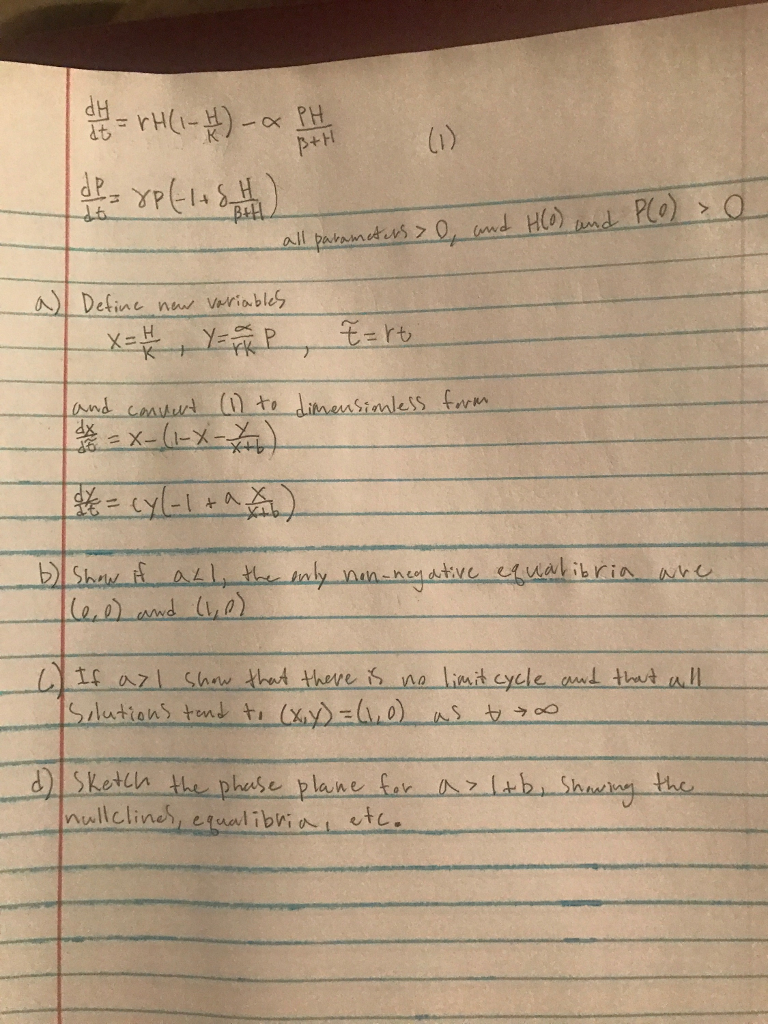 dH/dt = rH(1-H/K) - α PH/β+H (1)
dP/dt = γP(-1+δ H/β+H)
all parameters > 0, and H(0) and P(0) > 0
a) Define new variables
X = H/K , Y = α/rK P , t̃ = rt
and convert (1) to dimensionless form
dx/dt̃ = X-(1-X-Y/X+b)
dy/dt̃ = cy(-1 + a X/X+b)
b) Show if a<1, the only non-negative equalibria are
(0,0) and (1,0)
C) If a>1 show that there is no limit cycle and that all
Solutions tend to (X,Y) = (1,0) as t → ∞
d) Sketch the phase plane for a > 1+b, showing the
nullclines, equalibria, etc.